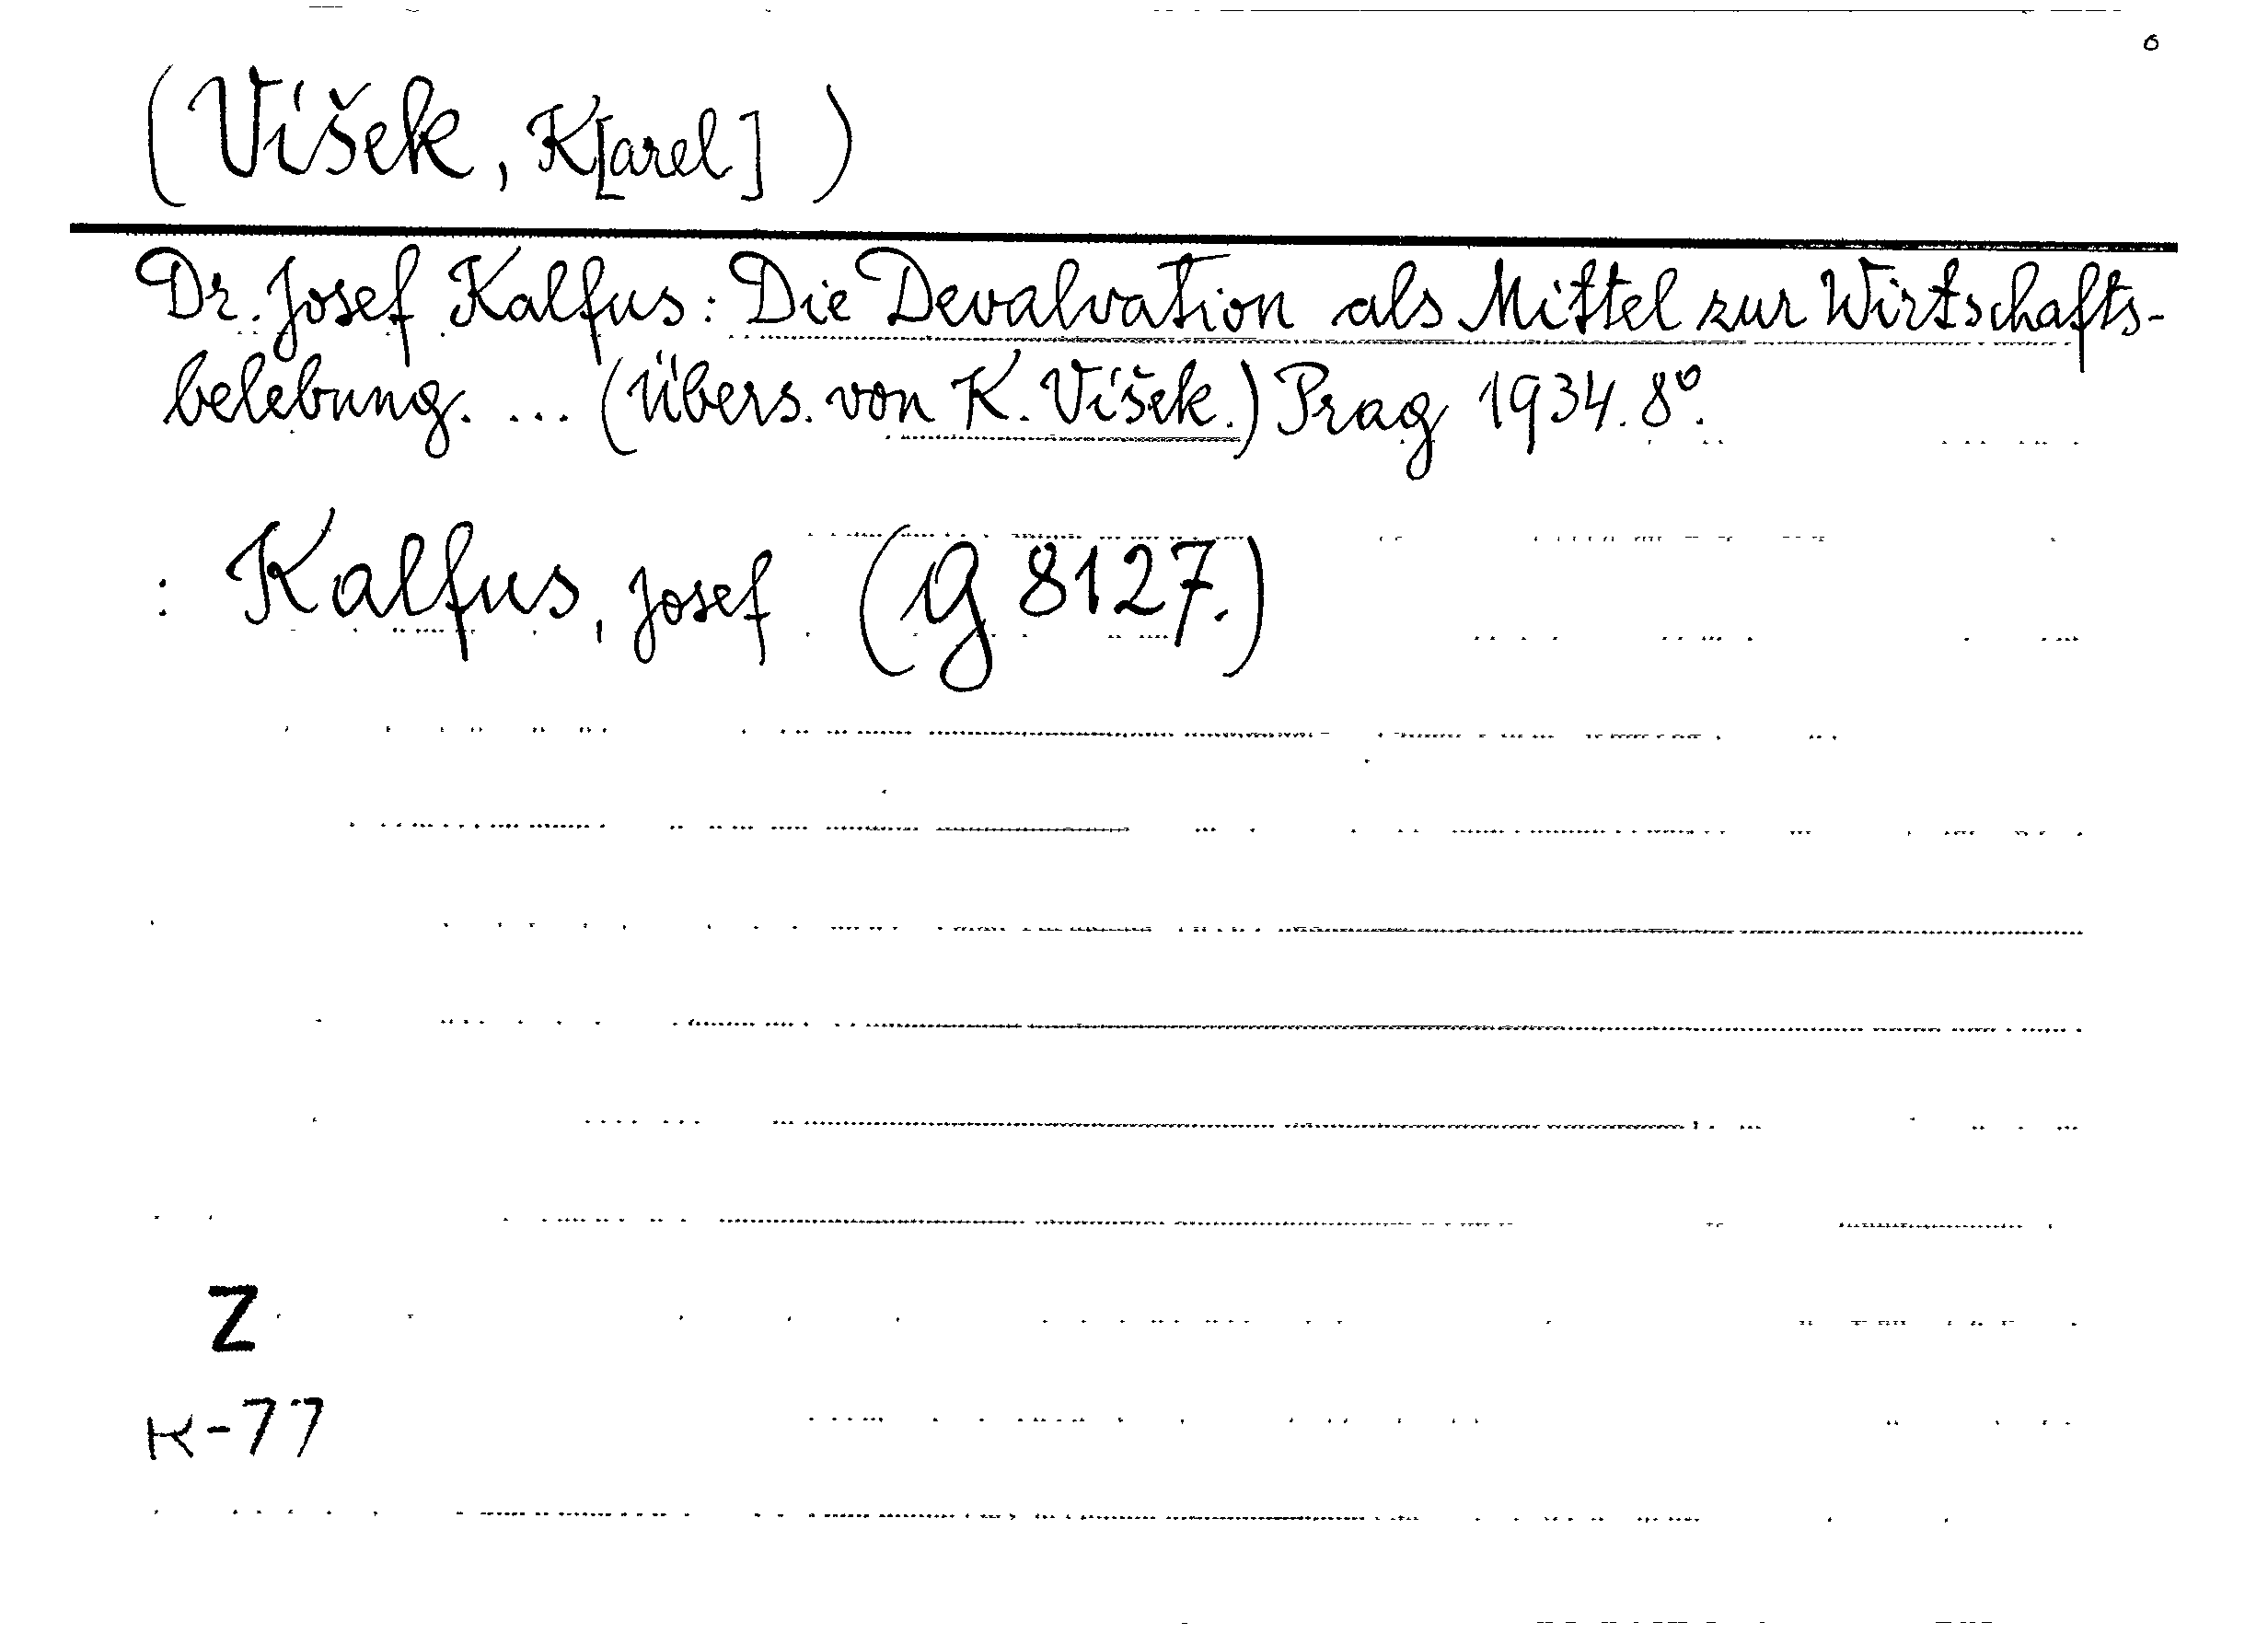 (Víšek, K[arel])
Dr. Josef Kalfus: Die Devalvation als Mittel zur Wirtschafts-
belebung. ... (Übers. von K. Víšek.) Prag 1934. 8°.
: Kalfus, Josef (G 8127.)
Z
K-77